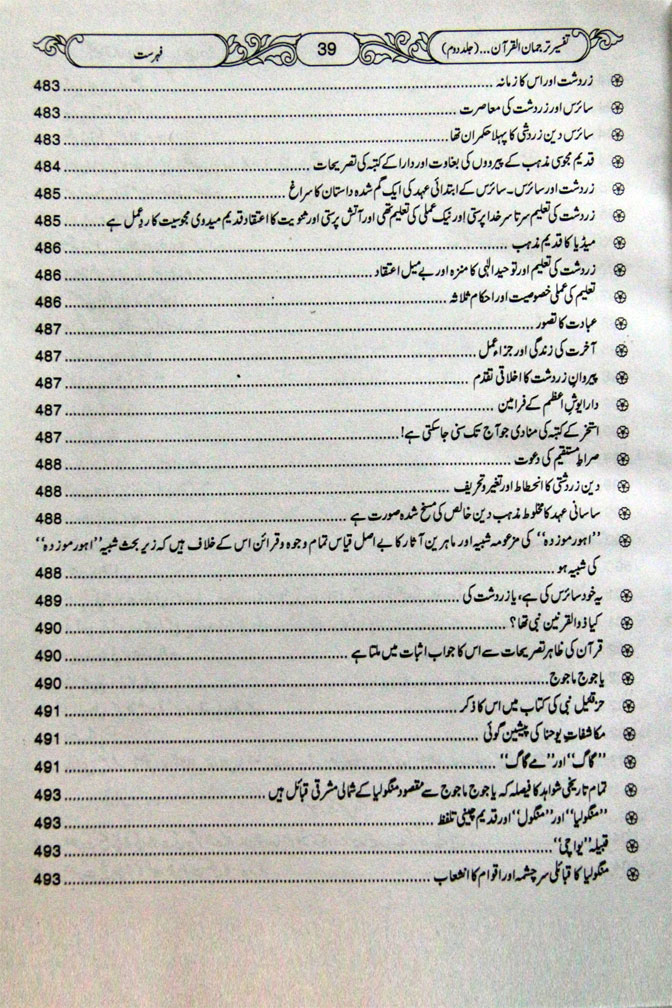 تفسیر ترجمان القرآن... (جلد دوم) 39 فہرست
زردشت اور اس کا زمانہ 483
سائرس اور زردشت کی معاصرت 483
سائرس دین زردشتی کا پہلا حکمران تھا 483
قدیم مجوسی مذہب کے پیروؤں کی بغاوت اور دارا کے کتبہ کی تصریحات 484
زردشت اور سائرس۔ سائرس کے ابتدائی عہد کی ایک گم شدہ داستان کا سراغ 485
زردشت کی تعلیم سرتاسر خدا پرستی اور نیک عملی کی تعلیم تھی اور آتش پرستی اور ثنویت کا اعتقاد قدیم میدوی مجوسیت کا ردِ عمل ہے 485
میڈیا کا قدیم مذہب 486
زردشت کی تعلیم اور توحید الٰہی کا منزہ اور بے میل اعتقاد 486
تعلیم کی عملی خصوصیت اور احکام ثلاثہ 486
عبادت کا تصور 487
آخرت کی زندگی اور جزاء عمل 487
پیروانِ زردشت کا اخلاقی تقدم 487
دارایوشِ اعظم کے فرامین 487
استخر کے کتبہ کی منادی جو آج تک سنی جا سکتی ہے! 487
صراطِ مستقیم کی دعوت 488
دین زردشتی کا انحطاط اور تغیر و تحریف 488
ساسانی عہد کا مخلوط مذہب دین خالص کی مسخ شدہ صورت ہے 488
”اہورموزدہ“ کی مزعومہ شبیہ اور ماہرین آثار کا بے اصل قیاس تمام وجوہ و قرائن اس کے خلاف ہیں کہ زیر بحث شبیہ ”اہورموزدہ“
کی شبیہ ہو 488
یہ خود سائرس کی ہے، یا زردشت کی 489
کیا ذوالقرنین نبی تھا؟ 490
قرآن کی ظاہر تصریحات سے اس کا جواب اثبات میں ملتا ہے 490
یاجوج ماجوج 490
حزقیل نبی کی کتاب میں اس کا ذکر 491
مکاشفاتِ یوحنا کی پیشین گوئی 491
”گاگ“ اور ”مے گاگ“ 491
تمام تاریخی شواہد کا فیصلہ کہ یاجوج ماجوج سے مقصود منگولیا کے شمالی مشرقی قبائل ہیں 493
”منگولیا“ اور ”منگول“ اور قدیم چینی تلفظ 493
قبیلہ ”یواچی“ 493
منگولیا کا قبائلی سرچشمہ اور اقوام کا انشعاب 493